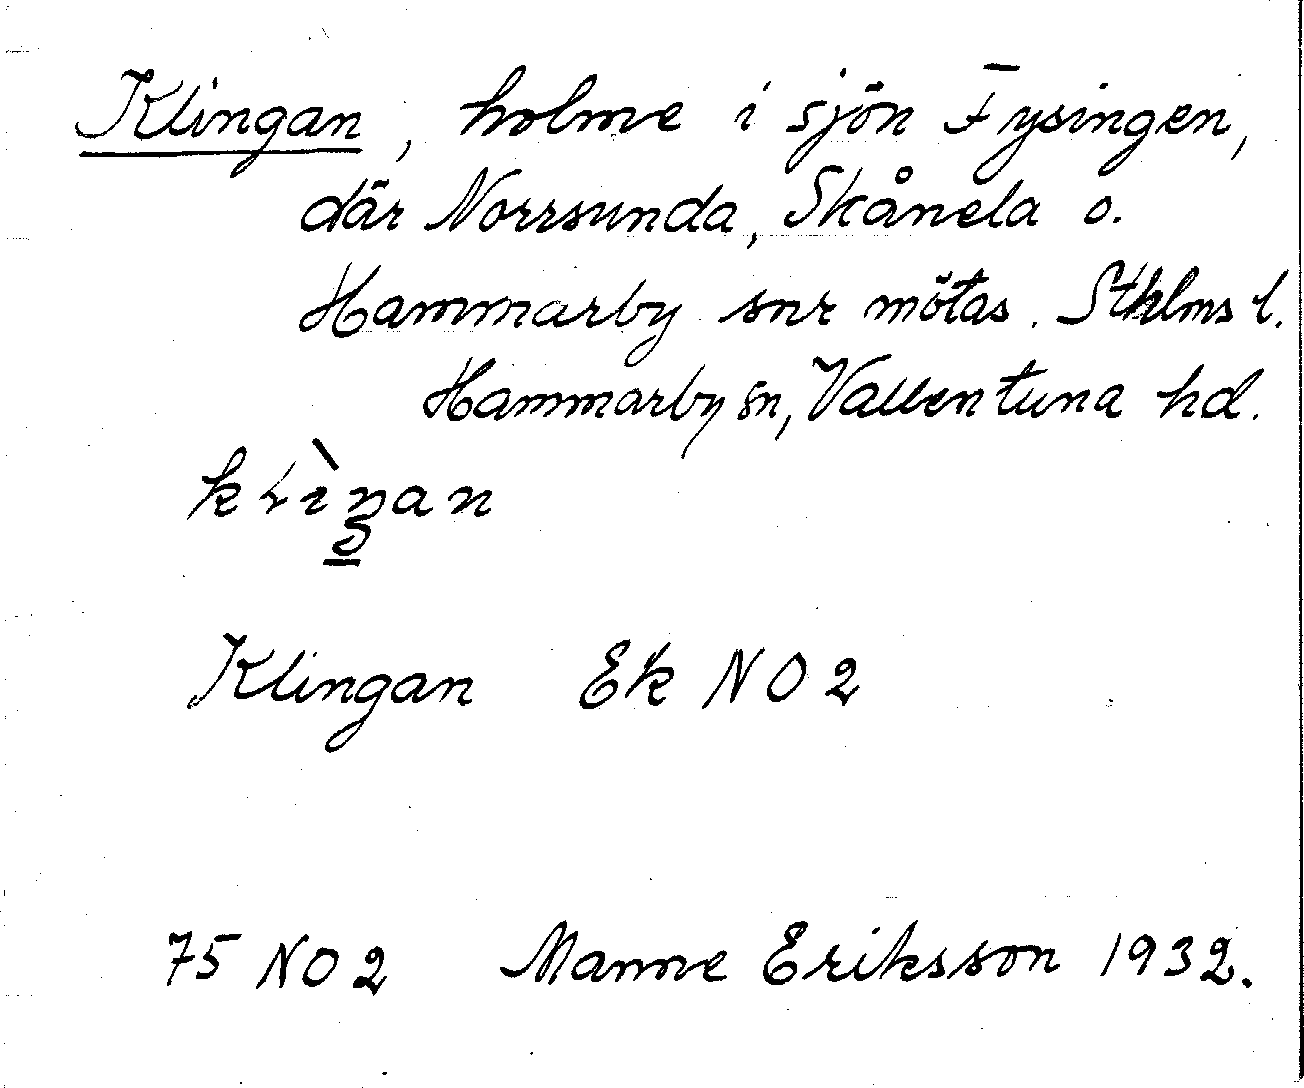 Klingan, holme i sjön Fysingen,
där Norrsunda, Skånela o.
Hammarby snr mötas. Sthlms l.
Hammarby sn, Vallentuna hd.
klìŋan
Klingan Ek NO 2
75 NO 2 Manne Eriksson 1932.